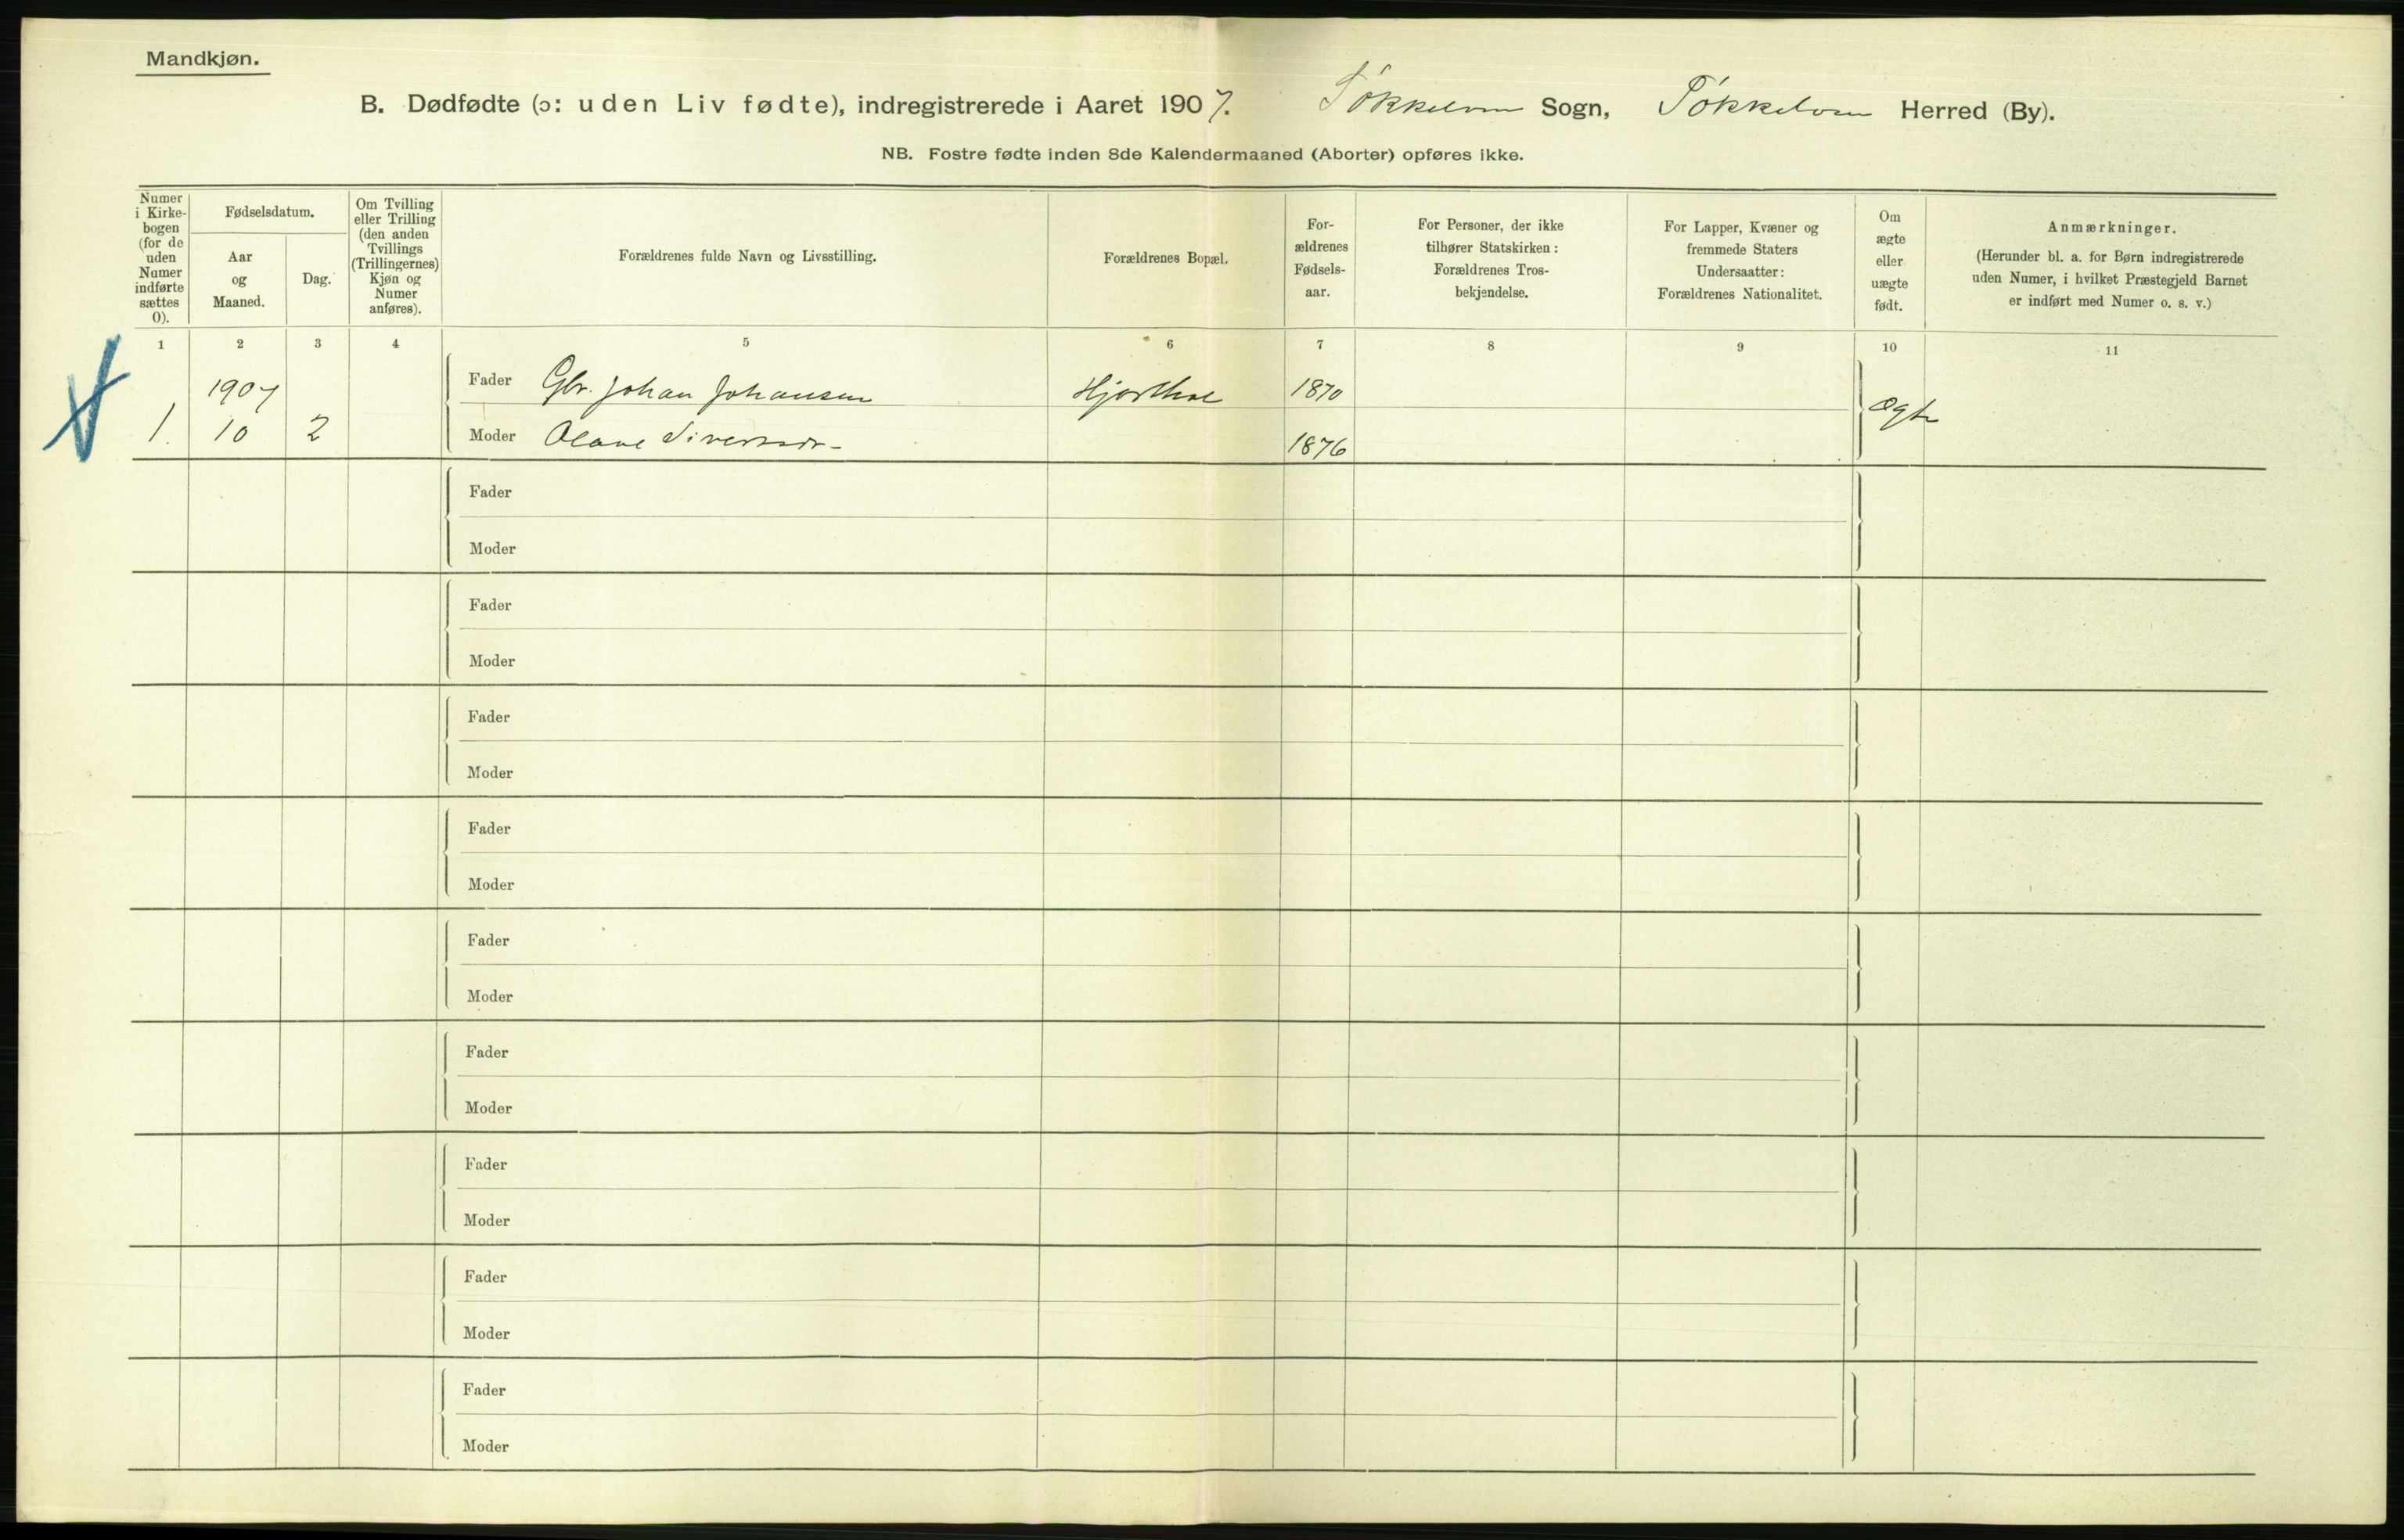 Mandkjøn.
B. Dødfødte (ɔ: uden Liv fødte), indregistrerede i Aaret 1907. Søkkelven Sogn, Søkkelven Herred (By).
NB. Fostre fødte inden 8de Kalendermaaned (Aborter) opføres ikke.
Numer i Kirkebogen (for de uden Numer indførte sættes 0).
Fødselsdatum.
Aar og Maaned.
Dag.
Om Tvilling eller Trilling (den anden Tvillings (Trillingernes) Kjøn og Numer anføres).
Forældrenes fulde Navn og Livsstilling.
Forældrenes Bopæl.
For-ældrenes Fødsels-aar.
For Personer, der ikke tilhører Statskirken: Forældrenes Tros-bekjendelse.
For Lapper, Kvæner og fremmede Staters Undersaatter: Forældrenes Nationalitet.
Om ægte eller uægte født.
Anmærkninger.
(Herunder bl. a. for Børn indregistrerede uden Numer, i hvilket Præstegjeld Barnet er indført med Numer o. s. v.)
1 2 3 4 5 6 7 8 9 10 11
1907 Fader Gbr. Johan Johansen 1870
1. 10 2 Moder Olave Sivertsdr. 1876 Ægte
Fader
Moder
Fader
Moder
Fader
Moder
Fader
Moder
Fader
Moder
Fader
Moder
Fader
Moder
Fader
Moder
Fader
Moder